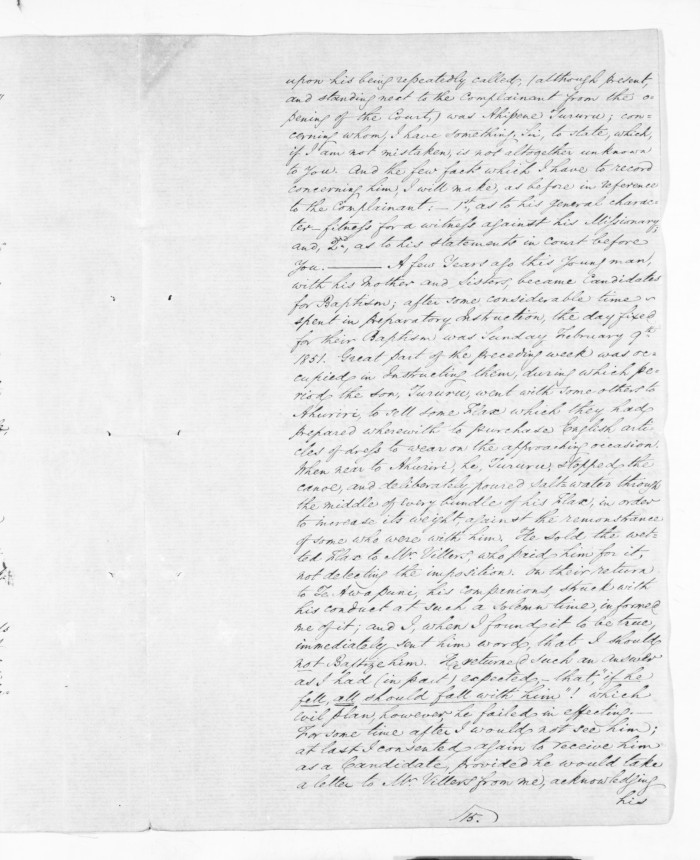 upon his being repeatedly called, (although present,
and standing next to the Complainant from the o-
pening of the Court,) was Ahipene Tururu; con-
cerning whom, I have something, Sir, to state, which,
if I am not mistaken, is not altogether unknown
to You. And the few facts which I have to record
concerning him, I will make, as before in reference
to the Complainant:— 1st, as to his general charac-
ter—fitness for a witness against his Missionary;
and, 2nd, as to his statements in court before
You. ——— A few Years ago this Young man,
with his Mother and Sisters, became Candidates
for Baptism; after some considerable time
spent in preparatory Instruction, the day fixed
for their Baptism was Sunday February 9th
1851. Great part of the preceding week was oc-
cupied in Instructing them, during which pe-
riod the son, Tururu, went with some others to
Ahuriri, to sell some Flax which they had
prepared wherewith to purchase English arti-
cles of dress to wear on the approaching occasion.
When near to Ahuriri, he, Tururu, stopped the
canoe, and deliberately poured salt water through
the middle of every bundle of his Flax, in order
to increase its weight, against the remonstrance
of some who were with him. He sold the wet-
ted Flax to Mr. Villers, who paid him for it,
not detecting the imposition. On their return
to Te Awapuni, his companions, struck with
his conduct at such a Solemn time, informed
me of it; and I, when I found it to be true,
immediately sent him word, that I should
not Baptize him. He returned such an answer
as I had (in part) expected,—that, "if he
fell, all should fall with him"! which
evil plan, however, he failed in effecting.—
For some time after I would not see him;
at last I consented again to receive him
as a Candidate, provided he would take
a letter to Mr. Villers from me, acknowledging
his
15.